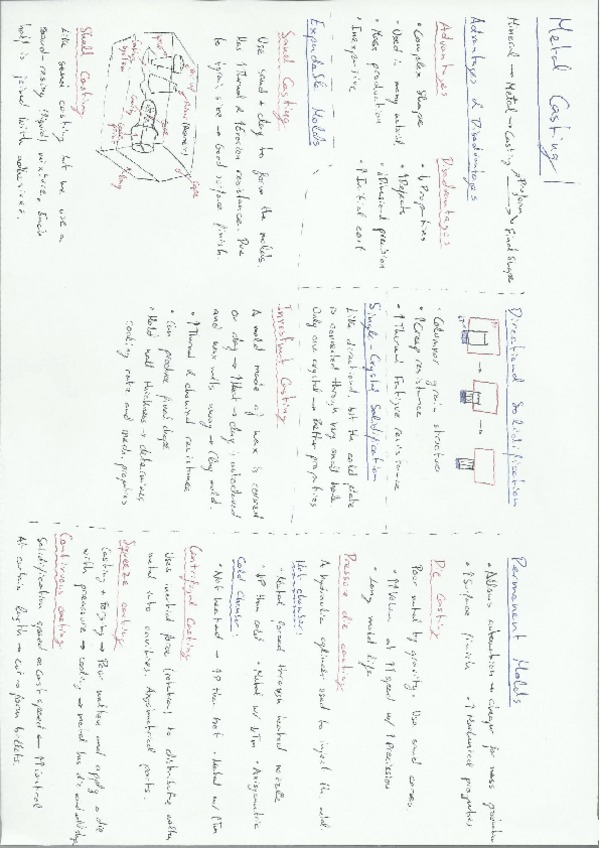 Metal Casting
Mineral → Metal → Casting → Preform
→ Final Shape
Advantages & Disadvantages
Advantages
• Complex shape
• Used in many
• Mass production
• Inexpensive
Disadvantages
• ↓ Properties
• ↑ Defects
• ↓ Dimensional precision
• ↑ Initial cost
Expendable Molds
Sand Casting
Use sand + clay to form the molds.
Has ↑ Thermal & ↑ Erosion resistance. Due
to grain size → Good surface finish.
Shell Casting
Like sand casting but we use a
sand-resin mixture. Each
half is joined with adhesives.
Directional Solidification
• Columnar grain structure
• ↑ Creep resistance
• ↑ Thermal Fatigue resistance
Single-Crystal Solidification
Like directional, but the cold plate
is connected through very small hole.
Only one crystal → Better properties
Investment Casting
A mold made of wax is covered
w/ clay → ↑ Heat → clay
and wax melts away → Clay mold
• ↑ Thermal & chemical resistances
• Can produce final shape
• Mold wall thickness → determines
cooling rate and mech. properties
Permanent Molds
• Allows automation → cheaper for mass production
• ↑ Surface finish • ↑ Mechanical properties
Die Casting
Pour metal by gravity. Use sand cores
• ↑↑ Volum at ↑↑ speed w/ ↑ Precission
• Long mold life
Pressure die casting
A hydraulic cylinder used to inject the metal
Hot chamber:
• Metal forced through heated nozzle
• ↓P than cold • Metal w/ ↓Tm • Axisymmetric
Cold chamber:
• Not heated → ↑P than hot • Metal w/ ↑Tm
Centrifugal Casting
Uses inertial force (rotation) to distribute molten
metal into cavities. Axysimetrical parts.
Squeeze casting
Casting + Forging → Pour molten and apply a die
with pressure → cooling → metal has die and
Continuous casting
Solidification speed = cast speed → ↑↑ control
At certain length → cut → form billets.